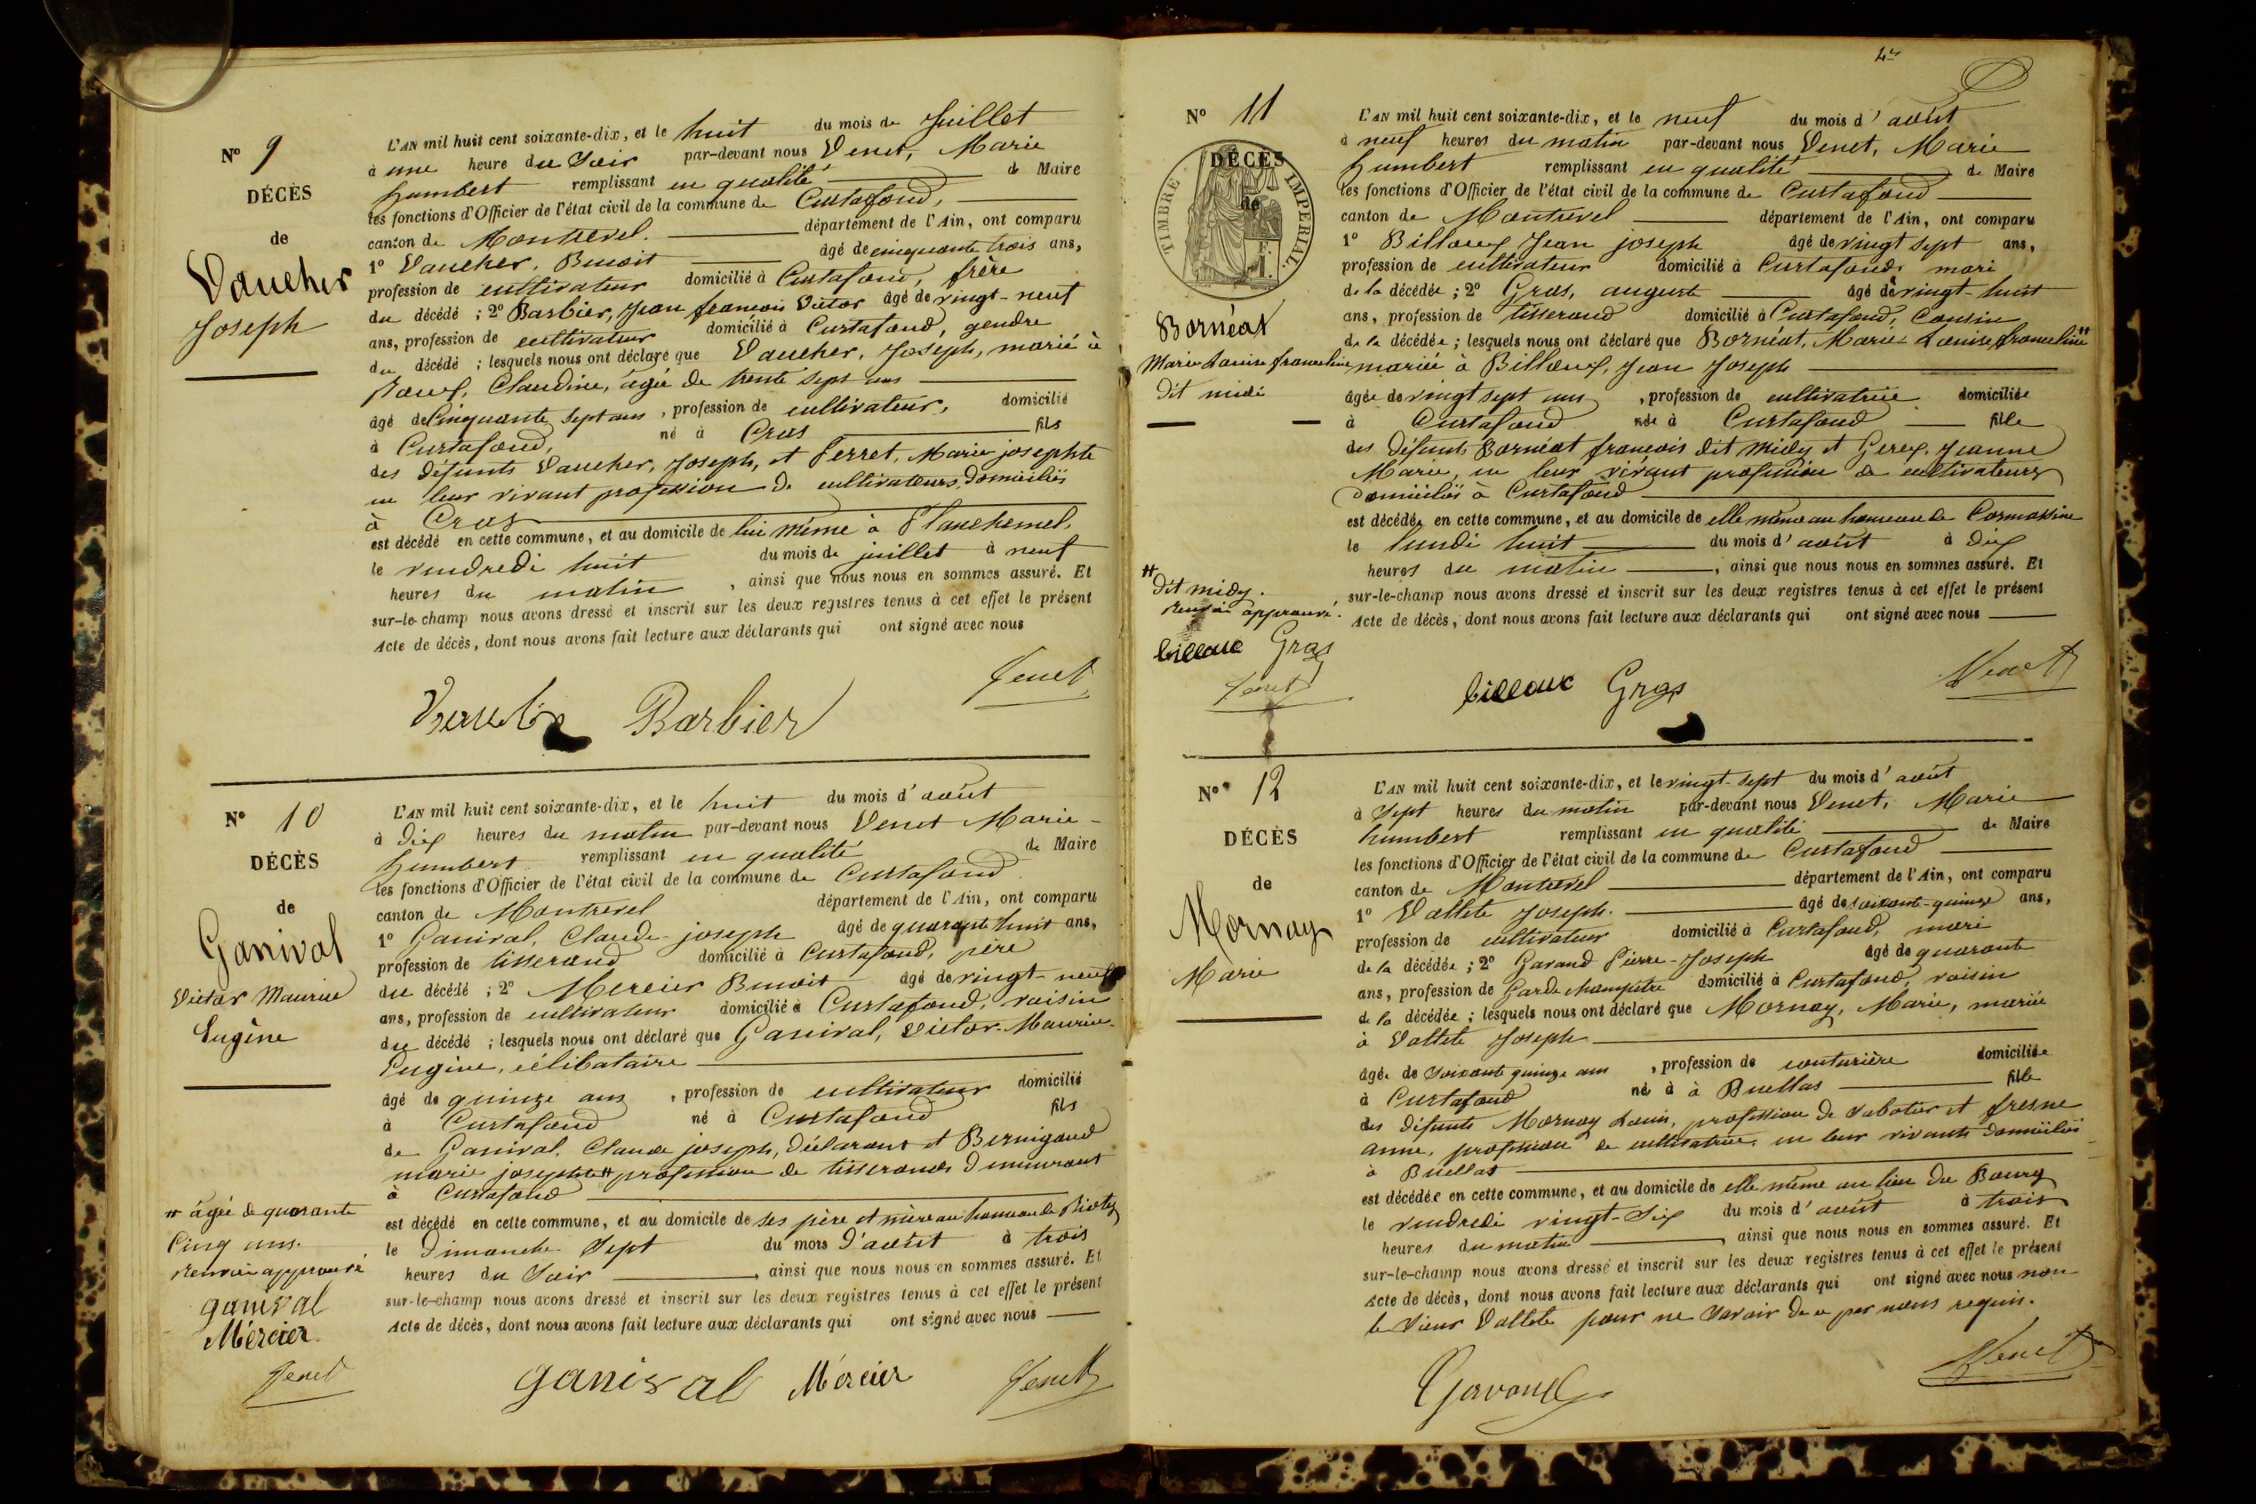 N° 9
DÉCÈS
de
Vaucher
Joseph
L'AN mil huit cent soixante-dix, et le huit du mois de Juillet
à une heure du Soir par-devant nous Venet, Marie
humbert remplissant en qualité de Maire
les fonctions d'Officier de l'état civil de la commune de Curtafond,
canton de Montrevel. département de l'Ain, ont comparu
1° Vaucher, Benoit âgé de cinquante trois ans,
profession de cultivateur domicilié à Curtafond, frère
du décédé ; 2° Barbier, Jean françois Victor âgé de vingt-neuf
ans, profession de cultivateur domicilié à Curtafond, gendre
du décédé ; lesquels nous ont déclaré que Vaucher, Joseph, marié à
Claudine, âgée de trente sept ans
âgé de Cinquante sept ans, profession de cultivateur, domicilié
à Curtafond, né à Cras fils
des défunts Vaucher, Joseph, et Perret, Marie josephte
en leur vivant profession de cultivateurs, domiciliés
à Cras
est décédé en cette commune, et au domicile de lui même à Planchemel,
le vendredi huit du mois de juillet à neuf
heures du matin, ainsi que nous nous en sommes assuré. Et
sur-le-champ nous avons dressé et inscrit sur les deux registres tenus à cet effet le présent
Acte de décès, dont nous avons fait lecture aux déclarants qui ont signé avec nous
Venet
Barbier
N° 10
DÉCÈS
de
Ganival
Victor Maurice
Eugène
L'AN mil huit cent soixante-dix, et le huit du mois d'août
à dix heures du matin par-devant nous Venet Marie-
humbert remplissant en qualité de Maire
les fonctions d'Officier de l'état civil de la commune de Curtafond
canton de Montrevel département de l'Ain, ont comparu
1° Ganival, Claude-joseph âgé de quarante huit ans,
profession de tisserand domicilié à Curtafond, père
du décédé ; 2° Mercier Benoit âgé de vingt-neuf
ans, profession de cultivateur domicilié à Curtafond, voisin
du décédé ; lesquels nous ont déclaré que Ganival, Victor-Maurice-
Eugène, célibataire
âgé de quinze ans, profession de cultivateur domicilié
à Curtafond né à Curtafond fils
de Ganival, Claude joseph, déclarant et Bernigaud
marie josephte # profession de tisserands demeurant
à Curtafond
est décédé en cette commune, et au domicile de ses père et mère au hameau de
le Dimanche Sept du mois d'août à trois
heures du Soir, ainsi que nous nous en sommes assuré. Et
sur-le-champ nous avons dressé et inscrit sur les deux registres tenus à cet effet le présent
Acte de décès, dont nous avons fait lecture aux déclarants qui ont signé avec nous
# âgée de quarante
Cinq ans.
renvoi approuvé
ganival
Mércier
Venet
ganival Mércier Venet
N° 11
DÉCÈS
de
TIMBRE IMPÉRIAL.
Bornéat
Marie Louise franceline
dit midi
L'AN mil huit cent soixante-dix, et le neuf du mois d'août
à neuf heures du matin par-devant nous Venet, Marie
humbert remplissant en qualité de Maire
les fonctions d'Officier de l'état civil de la commune de Curtafond
canton de Montrevel département de l'Ain, ont comparu
1° Billoux Jean joseph âgé de vingt sept ans,
profession de cultivateur domicilié à Curtafond, mari
de la décédée ; 2° Gras, auguste âgé de vingt-huit
ans, profession de tisserand domicilié à Curtafond, Cousin
de la décédée ; lesquels nous ont déclaré que Bornéat, Marie Louise, franceline #
mariée à Billoux, Jean Joseph
âgée de vingt sept ans, profession de cultivatrice domiciliée
à Curtafond née à Curtafond fille
des défunts Bornéat françois dit midy et Gerex, Jeanne
Marie, en leur vivant profession de cultivateurs
domiciliés à Curtafond
est décédée en cette commune, et au domicile de elle même au hameau de Cormassine
le lundi huit du mois d'août à dix
heures du matin, ainsi que nous nous en sommes assuré. Et
sur-le-champ nous avons dressé et inscrit sur les deux registres tenus à cet effet le présent
Acte de décès, dont nous avons fait lecture aux déclarants qui ont signé avec nous
# dit midy.
renvoi approuvé.
billoux Gras
Venet
billoux Gras Venet
N° 12
DÉCÈS
de
Mornay
Marie
L'AN mil huit cent soixante-dix, et le vingt-sept du mois d'août
à Sept heures du matin par-devant nous Venet, Marie
humbert remplissant en qualité de Maire
les fonctions d'Officier de l'état civil de la commune de Curtafond
canton de Montrevel département de l'Ain, ont comparu
1° Vallete Joseph. âgé de soixante-quinze ans,
profession de cultivateur domicilié à Curtafond, mari
de la décédée ; 2° Gavand Pierre-Joseph âgé de quarante
ans, profession de Garde champêtre domicilié à Curtafond, voisin
de la décédée ; lesquels nous ont déclaré que Mornay, Marie, mariée
à Vallete Joseph
âgée de soixante quinze ans, profession de couturière domiciliée
à Curtafond né à à Buellas fille
des défunts Mornay Louis, profession de sabotier et fresne
anne, profession de cultivatrice, en leur vivants domiciliés
à Buellas
est décédée en cette commune, et au domicile de elle même au lieu du Bourg
le vendredi vingt-Six du mois d'août à trois
heures du matin, ainsi que nous nous en sommes assuré. Et
sur-le-champ nous avons dressé et inscrit sur les deux registres tenus à cet effet le présent
Acte de décès, dont nous avons fait lecture aux déclarants qui ont signé avec nous non
le Sieur Vallete pour ne savoir de ce par nous requis.
Gavand Venet